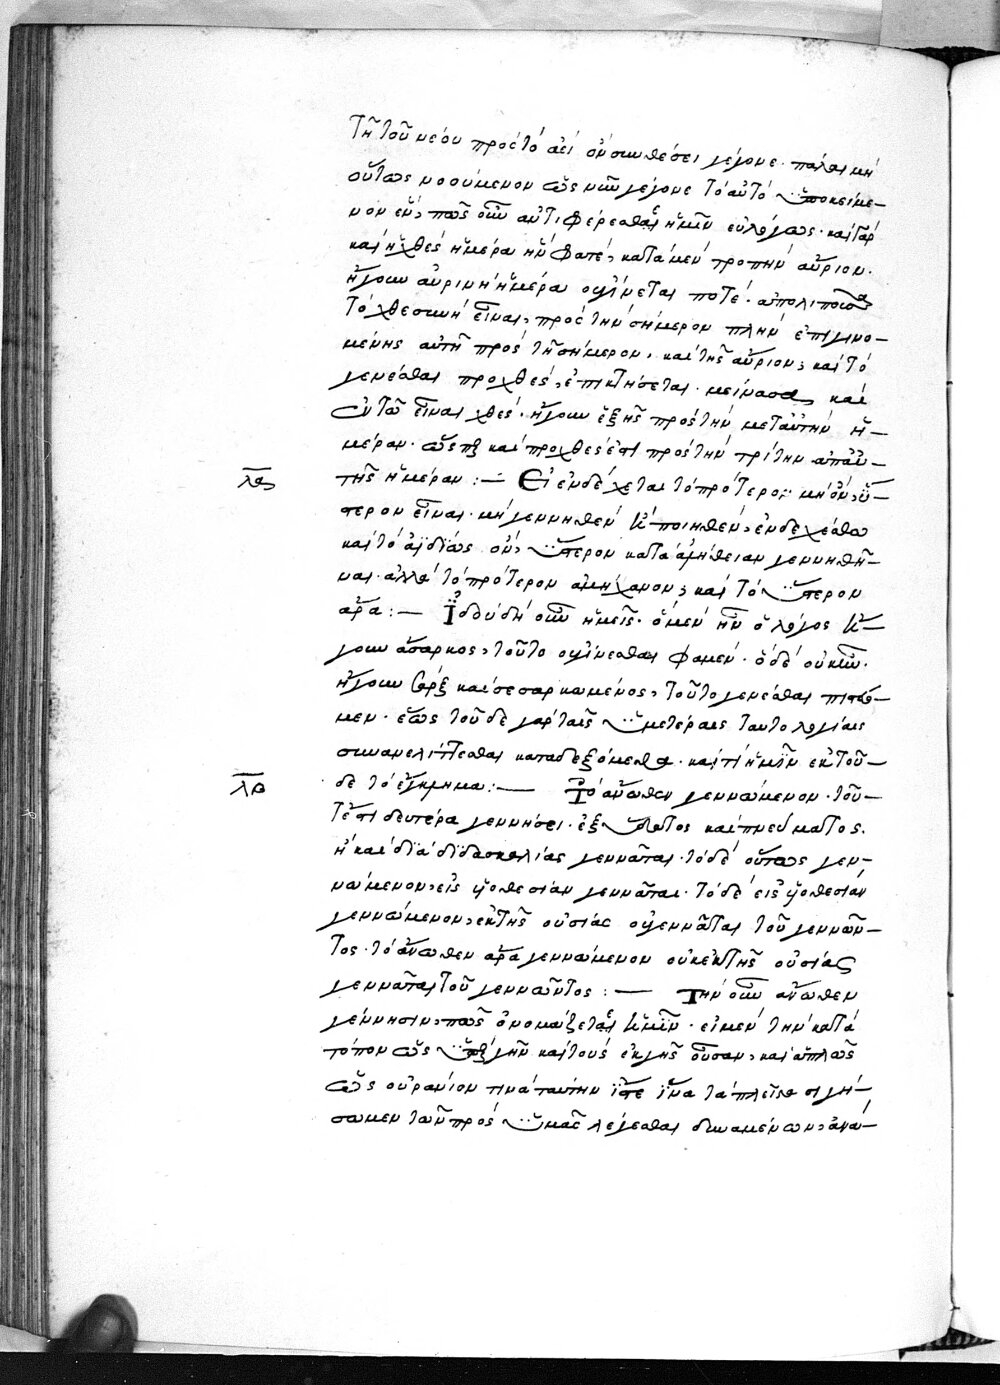 τῆ τοῦ νέου πρὸς τὸ ἀεὶ ὂν συνθέσει γέγονε· πάλαι μὴ
οὕτως νοούμενον ὡς νῦν γέγονε τὸ αὐτὸ ὑποκείμε-
νον ἕν; πῶς οὖν ἀντιφέρεσθαι ἡμῖν εὐλόγως· καὶ γὰρ
καὶ ἡ χθὲς ἡμέρα ἣν φατὲ, κατὰ μὲν τροπὴν αὔριον·
ἤγουν αὐρινὴ ἡμέρα οὐ γίνεται ποτέ· ἀπολιποῦσα
τὸ χθεσινὴ εἶναι, πρὸς τὴν σήμερον πλὴν ἐπιγινο-
μένης αὐτῆ πρὸς τῆ σήμερον, καὶ τῆς αὔριον, καὶ τὸ
γενέσθαι προχθὲς, ἐπικτήσεται· μείνασα καὶ
ἐν τῶ εἶναι χθές· ἤγουν ἑξῆς πρὸς τὴν μετ' αὐτὴν ἡ-
μέραν· ὥσπερ καὶ προχθές ἐστι πρὸς τὴν τρίτην ἀπ' αὐ-
τῆς ἡμέραν :—
λς Εἰ ἐνδέχεται τὸ πρότερον μὴ ὂν, ὕ-
στερον εἶναι· μὴ γεννηθὲν ἢ ποιηθὲν, ἐνδεχέσθω
καὶ τὸ ἀϊδίως ὂν, ὕστερον κατὰ ἀλήθειαν γεννηθῆ-
ναι· ἀλλὰ τὸ πρότερον ἀμήχανον, καὶ τὸ ὕστερον
ἄρα :— Ἰδοὺ δὴ οὖν ἡμεῖς· ὃ μὲν ἦν ὁ λόγος ἤ-
γουν ἄσαρκος, τοῦτο οὐ γίνεσθαι φαμέν· ὃ δὲ οὐκ ἦν·
ἤγουν σὰρξ καὶ σεσαρκωμένος, τοῦτο γενέσθαι πιστεύο-
μεν· ἕως τοῦδε γὰρ ταῖς ὑμετέραις ταυτολογίαις
συνανελίττεσθαι καταδεξόμεθα· καὶ τί ἡμῖν ἐκ τοῦ-
δε τὸ ἔγκλημα :—
λζ Τὸ ἄνωθεν γεννώμενον· του-
τέστι δευτέρα γεννήσει· ἐξ ὕδατος καὶ πνεύματος.
ἢ καὶ διὰ διδασκαλίας γεννᾶται· τὸ δὲ οὕτως γεν-
νώμενον, εἰς υἱοθεσίαν γεννᾶται· τὸ δὲ εἰς υἱοθεσίαν
γεννώμενον, ἐκ τῆς οὐσίας οὐ γεννᾶται τοῦ γεννῶν-
τος· τὸ ἄνωθεν ἄρα γεννώμενον οὐκ ἐκ τῆς οὐσίας
γεννᾶται τοῦ γεννῶντος :— Τὴν οὖν ἄνωθεν
γέννησιν, πῶς ὀνομάζεται ἡμῖν· εἰ μὲν τὴν κατὰ
τόπον ὡς ὑπὲρ γῆν καὶ τοὺς ἐκ γῆς οὖσαν, καὶ ἁπλῶς
ὡς οὐράνιον τινὰ ταύτην ἴστε ἵνα τὰ πλεῖστα σιγή-
σωμεν τῶν πρὸς ὑμᾶς λέγεσθαι δυναμένων, ἀνά-